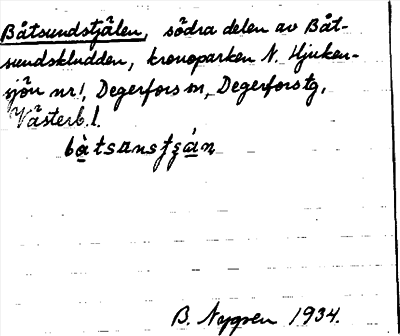 Båtsundstjälen, södra delen av Båt-
sundskludden, kronoparken N. Hjuken-
sjön nr 1, Degerfors sn, Degerfors tg,
Västerb. l.
B. Nygren 1934.